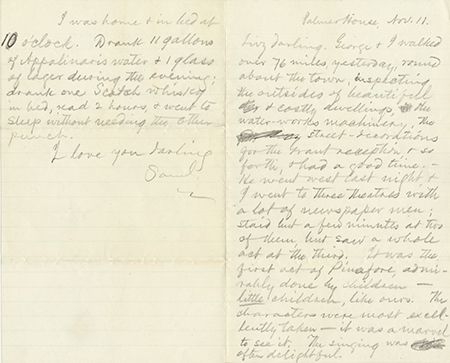 Palmer House, Nov. 11.
Livy darling, George & I walked
over 76 miles yesterday, round
about the town, inspecting
the outsides of beautiful
& costly dwellings, the
water-works machinery, the
street-decorations
for the Grant reception & so
forth, & had a good time. —
He went west last night &
I went to three theatres with
a lot of newspaper men;
staid but a few minutes at two
of them, but saw a whole
act at the third. It was the
first act of Pinafore, admi-
rably done by children —
little children, like ours. The
characters were most excel-
lently taken — it was a marvel
to see it. The singing was
often delightful.
I was home & in bed at
10 o'clock. Drank 11 gallons
of Appolinaris water & 1 glass
of lager during the evening;
drank one Scotch whisky
in bed, read 2 hours, & went to
sleep without needing the other
punch.
I love you darling
Saml.